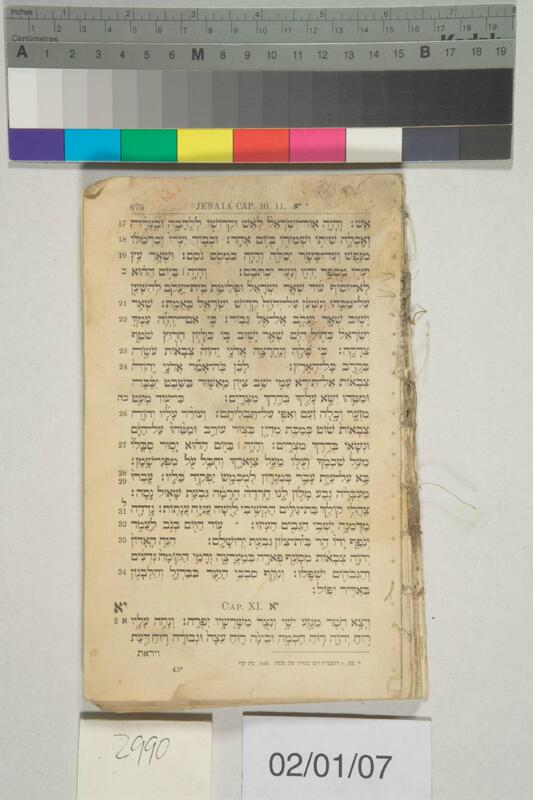 Inches 1 2 3 4 5 6 7 8
Centimetres 1 2 3 4 5 6 7 8 9 10 11 12 13 14 15 16 17 18 19
A 1 2 3 4 5 6 M 8 9 10 11 12 13 14 15 B 17 18 19
675 JESAIA CAP. 10. 11. י יא
17 אֵשׁ׃ וְהָיָה אוֹר־יִשְׂרָאֵל לְאֵשׁ וּקְדוֹשׁוֹ לְלֶהָבָה וּבָעֲרָה
18 וְאָכְלָה שִׁיתוֹ וּשְׁמִירוֹ בְּיוֹם אֶחָד׃ וּכְבוֹד יַעְרוֹ וְכַרְמִלּוֹ
19 מִנֶּפֶשׁ וְעַד־בָּשָׂר יְכַלֶּה וְהָיָה כִּמְסֹס נֹסֵס׃ וּשְׁאָר עֵץ
כ יַעְרוֹ מִסְפָּר יִהְיוּ וְנַעַר יִכְתְּבֵם׃ וְהָיָה ׀ בַּיּוֹם הַהוּא
לֹא־יוֹסִיף עוֹד שְׁאָר יִשְׂרָאֵל וּפְלֵיטַת בֵּית־יַעֲקֹב לְהִשָּׁעֵן
21 עַל־מַכֵּהוּ וְנִשְׁעַן עַל־יְהוָה קְדוֹשׁ יִשְׂרָאֵל בֶּאֱמֶת׃ שְׁאָר
22 יָשׁוּב שְׁאָר יַעֲקֹב אֶל־אֵל גִּבּוֹר׃ כִּי אִם־יִהְיֶה עַמְּךָ
יִשְׂרָאֵל כְּחוֹל הַיָּם שְׁאָר יָשׁוּב בּוֹ כִּלָּיוֹן חָרוּץ שׁוֹטֵף
23 צְדָקָה׃ כִּי כָלָה וְנֶחֱרָצָה אֲדֹנָי יְהוִה צְבָאוֹת עֹשֶׂה
24 בְּקֶרֶב כָּל־הָאָרֶץ׃ לָכֵן כֹּה־אָמַר אֲדֹנָי יְהוִה
צְבָאוֹת אַל־תִּירָא עַמִּי יֹשֵׁב צִיּוֹן מֵאַשּׁוּר בַּשֵּׁבֶט יַכֶּכָּה
כה וּמַטֵּהוּ יִשָּׂא־עָלֶיךָ בְּדֶרֶךְ מִצְרָיִם׃ כִּי־עוֹד מְעַט
26 מִזְעָר וְכָלָה זַעַם וְאַפִּי עַל־תַּבְלִיתָם׃ וְעוֹרֵר עָלָיו יְהוָה
צְבָאוֹת שׁוֹט כְּמַכַּת מִדְיָן בְּצוּר עוֹרֵב וּמַטֵּהוּ עַל־הַיָּם
27 וּנְשָׂאוֹ בְּדֶרֶךְ מִצְרָיִם׃ וְהָיָה ׀ בַּיּוֹם הַהוּא יָסוּר סֻבֳּלוֹ
מֵעַל שִׁכְמֶךָ וְעֻלּוֹ מֵעַל צַוָּארֶךָ וְחֻבַּל עֹל מִפְּנֵי־שָׁמֶן׃
28 בָּא עַל־עַיַּת עָבַר בְּמִגְרוֹן לְמִכְמָשׂ יַפְקִיד כֵּלָיו׃ עָבְרוּ
29 מַעְבָּרָה גֶּבַע מָלוֹן לָנוּ חָרְדָה הָרָמָה גִּבְעַת שָׁאוּל נָסָה׃
ל צַהֲלִי קוֹלֵךְ בַּת־גַּלִּים הַקְשִׁיבִי לַיְשָׁה עֲנִיָּה עֲנָתוֹת׃ נָדְדָה
31
32 מַדְמֵנָה יֹשְׁבֵי הַגֵּבִים הֵעִיזוּ׃ עוֹד הַיּוֹם בְּנֹב לַעֲמֹד
33 יְנֹפֵף יָדוֹ הַר בֵּית־צִיּוֹן גִּבְעַת יְרוּשָׁלִָם׃ הִנֵּה הָאָדוֹן
יְהוָה צְבָאוֹת מְסָעֵף פֻּארָה בְּמַעֲרָצָה וְרָמֵי הַקּוֹמָה גְּדֻעִים
34 וְהַגְּבֹהִים יִשְׁפָּלוּ׃ וְנִקַּף סִבְכֵי הַיַּעַר בַּבַּרְזֶל וְהַלְּבָנוֹן
בְּאַדִּיר יִפּוֹל׃
יא CAP. XI. יא
א 2 וְיָצָא חֹטֶר מִגֵּזַע יִשָׁי וְנֵצֶר מִשָּׁרָשָׁיו יִפְרֶה׃ וְנָחָה עָלָיו
רוּחַ יְהוָה רוּחַ חָכְמָה וּבִינָה רוּחַ עֵצָה וּגְבוּרָה רוּחַ דַּעַת
ויראת
v. 32. הפטרת יום שמיני של פסח
43*
2990
02/01/07